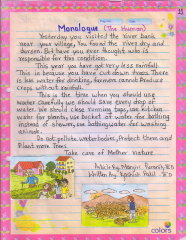 Monologue (The Human)
Yesterday you visited the river bank
near your village. You found the river dry and
barren. But have you ever thought who is
responsible for this condition.
This year you have got very less rainfall.
This is because you have cut down trees. There
is less water for drinking, farmers cannot produce
crops without rainfall.
This is the time when you should use
water carefully we should save every drop of
water. We should close running taps, use kitchen
water for plants, use bucket of water for bathing
instead of shower, use bathing water for washing
animals.
Do not pollute water bodies, Protect them and
Plant more trees.
Take care of Mother nature
Made by
Written by
colors